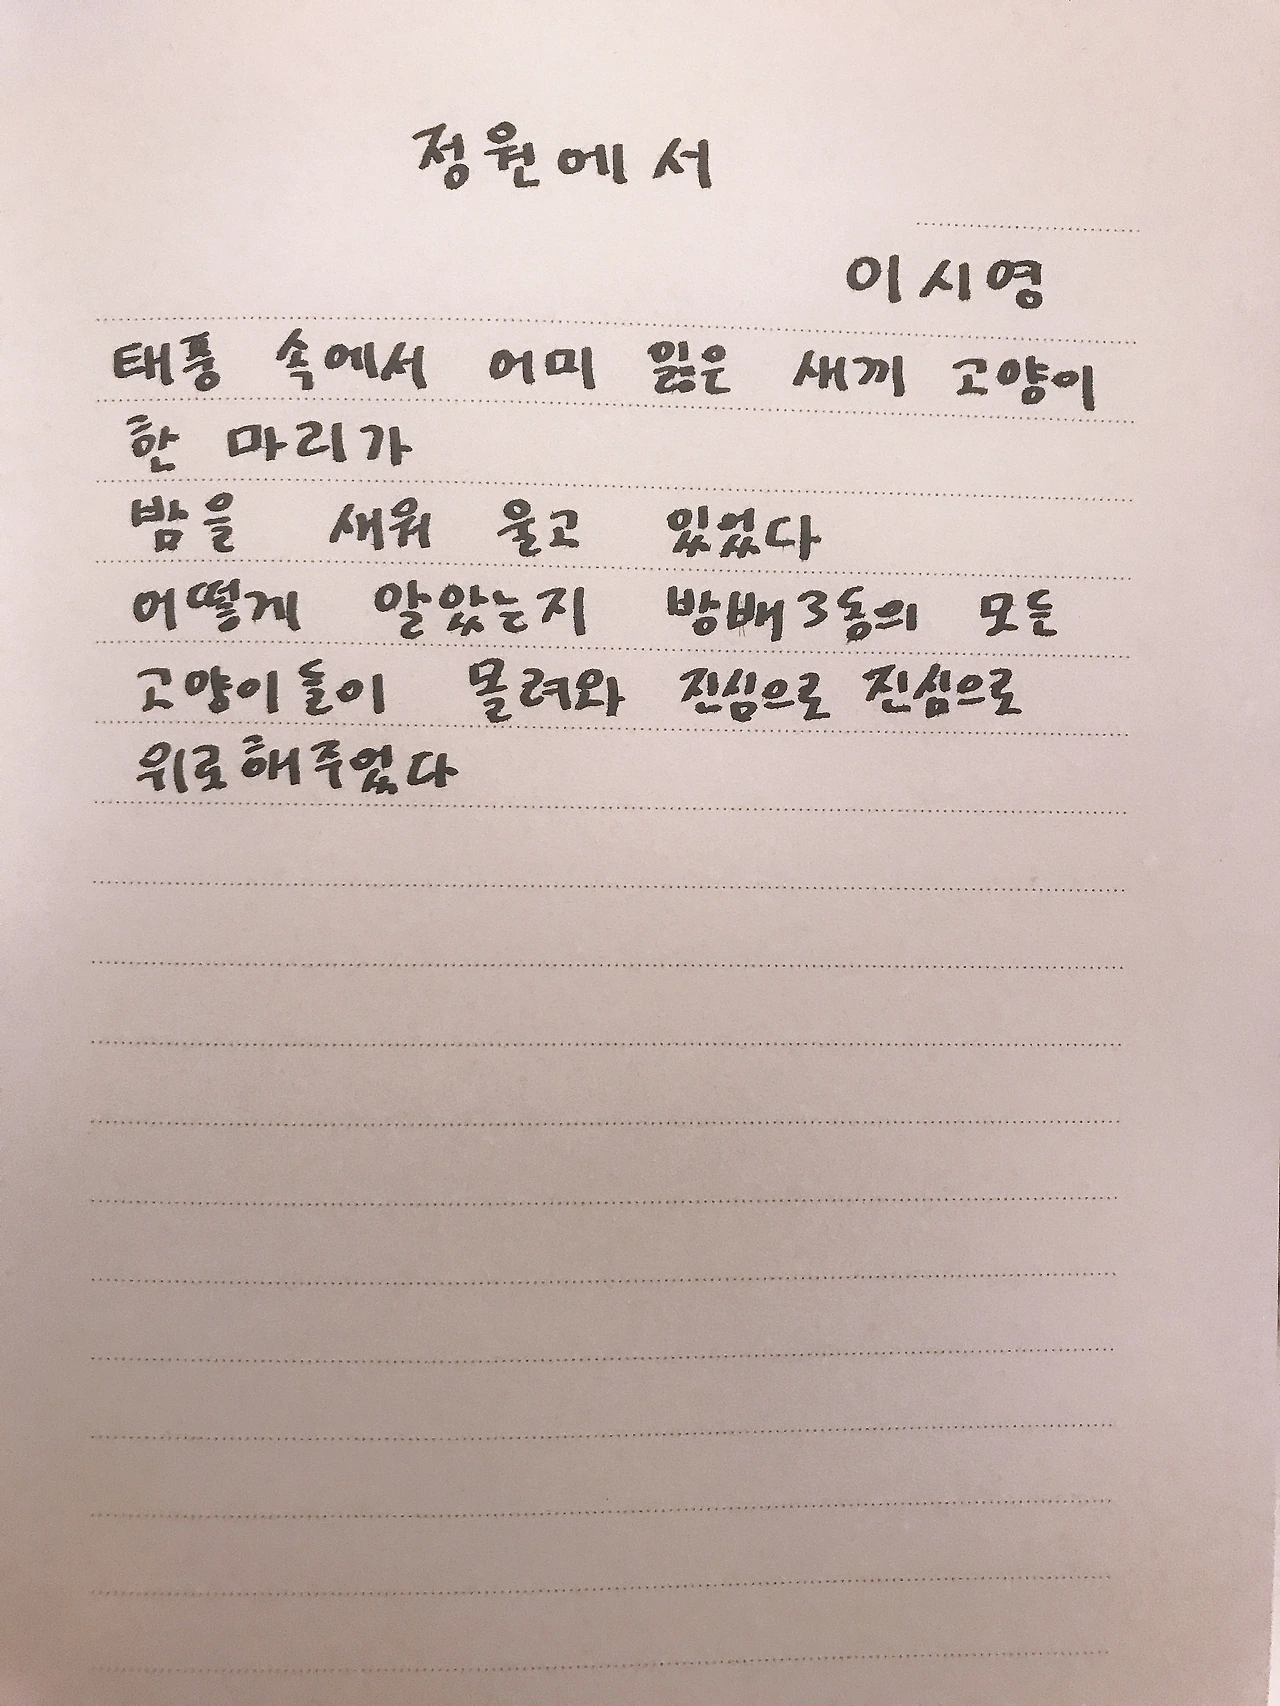 정원에서
이시영
태풍 속에서 어미 잃은 새끼 고양이
한 마리가
밤을 새워 울고 있었다
어떻게 알았는지 방배3동의 모든
고양이들이 몰려와 진심으로 진심으로
위로해주었다